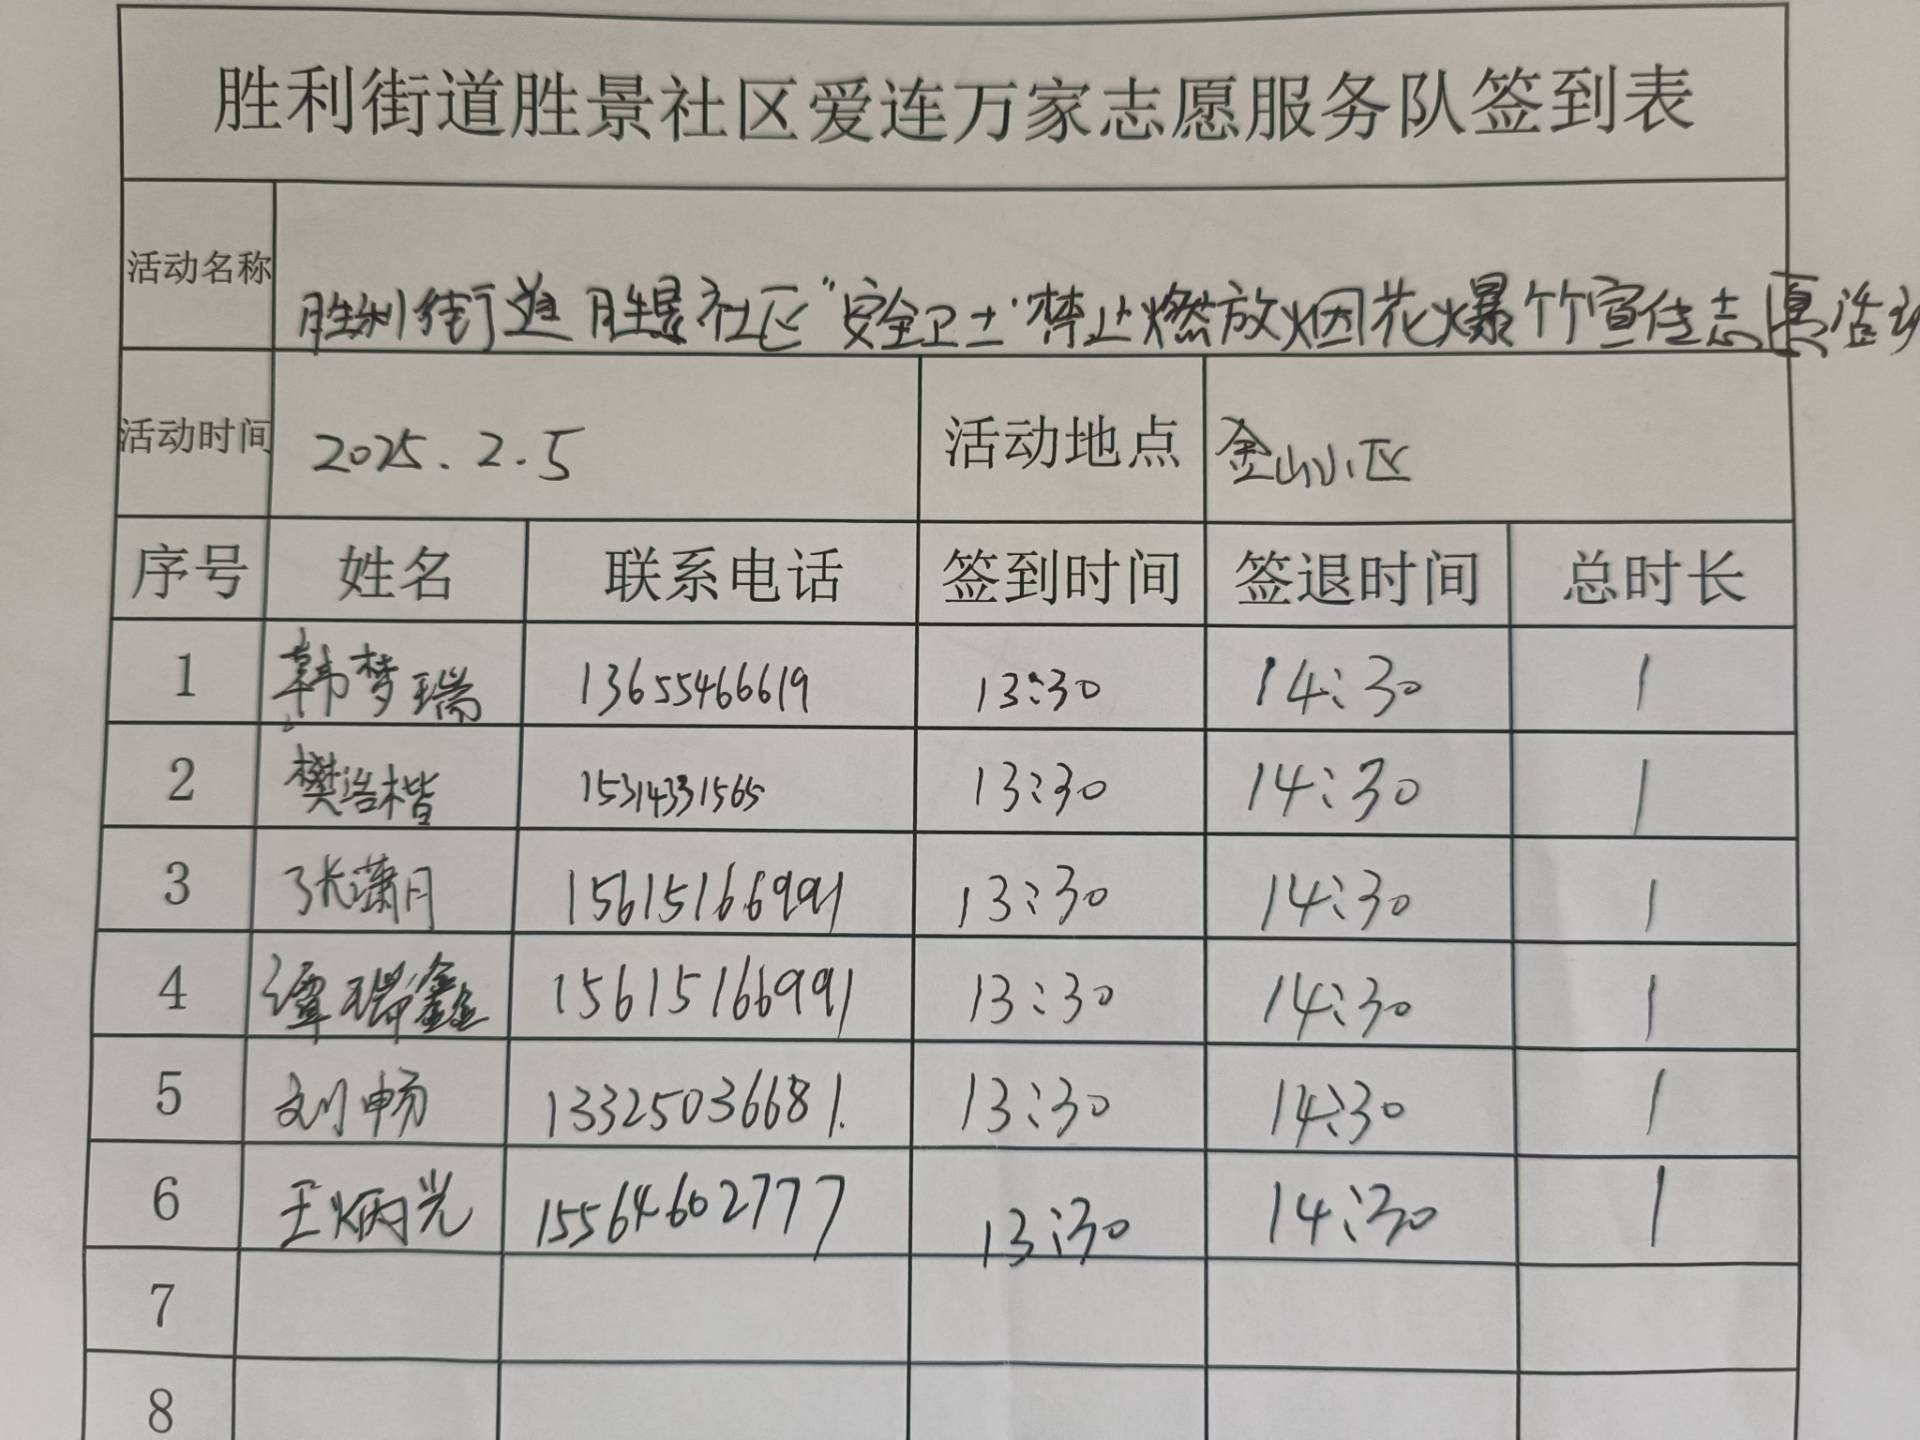 胜利街道胜景社区爱连万家志愿服务队签到表
活动名称 胜利街道胜景社区"安全卫士"禁止燃放烟花爆竹宣传志愿活动
活动时间 2025.2.5 活动地点 金山小区
序号 姓名 联系电话 签到时间 签退时间 总时长
1 韩梦瑞 13655466619 13:30 14:30 1
2 樊浩楷 15314331565 13:30 14:30 1
3 张潇月 15615166991 13:30 14:30 1
4 谭瑞鑫 15615166991 13:30 14:30 1
5 刘畅 13325036681. 13:30 14:30 1
6 王炳光 15564602777 13:30 14:30 1
7
8